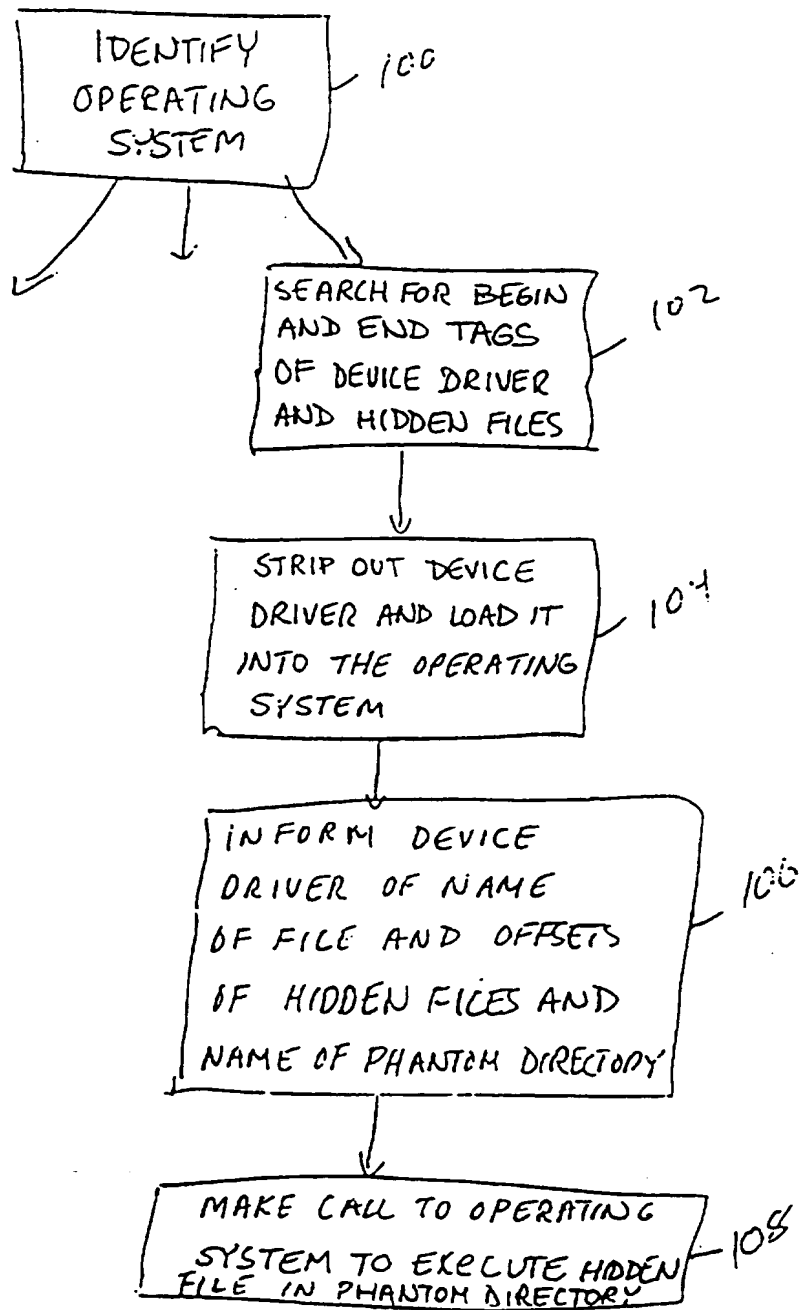 IDENTIFY
OPERATING
SYSTEM
100
SEARCH FOR BEGIN
AND END TAGS
OF DEVICE DRIVER
AND HIDDEN FILES
102
STRIP OUT DEVICE
DRIVER AND LOAD IT
INTO THE OPERATING
SYSTEM
104
INFORM DEVICE
DRIVER OF NAME
OF FILE AND OFFSETS
OF HIDDEN FILES AND
NAME OF PHANTOM DIRECTORY
106
MAKE CALL TO OPERATING
SYSTEM TO EXECUTE HIDDEN
FILE IN PHANTOM DIRECTORY
108